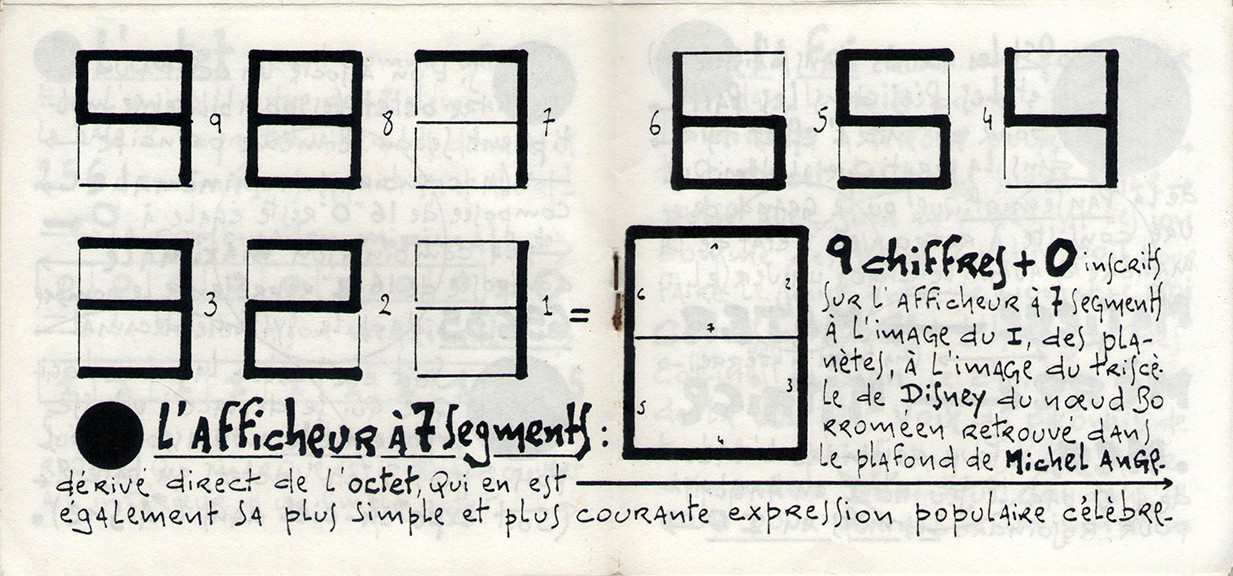 9 8 7
6 5 4
3 2 1 =
1
6 2
7
5 3
4
9 chiffres + 0 inscrits
sur l'afficheur à 7 segments
à l'image du I, des pla-
nètes, à l'image du triscè-
le de Disney du nœud Bo
rroméen retrouvé dans
le plafond de Michel Ange.
L'Afficheur à 7 segments :
dérive direct de l'octet, qui en est
également sa plus simple et plus courante expression populaire célèbre.